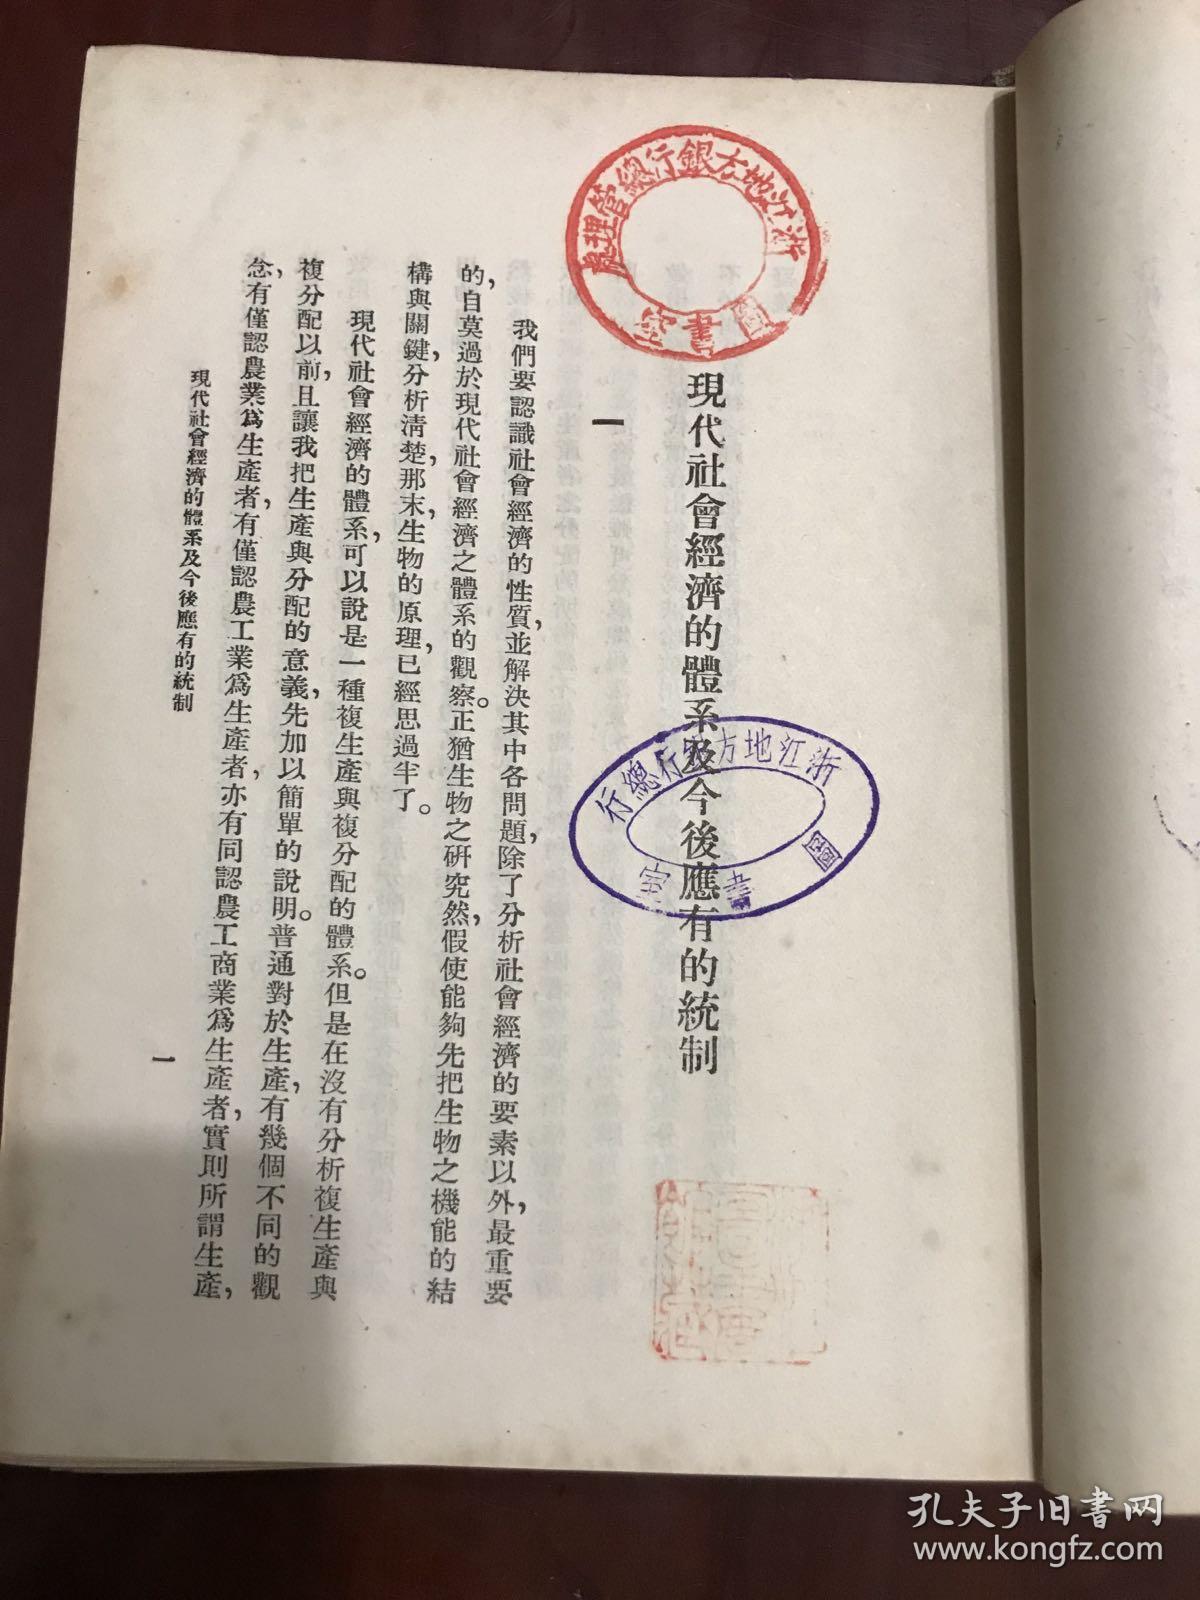 浙江地方銀行總管理處
圖書室
現代社會經濟的體系及今後應有的統制
浙江地方銀行總行
圖書室
一
我們要認識社會經濟的性質,並解決其中各問題,除了分析社會經濟的要素以外,最重要
的,自莫過於現代社會經濟之體系的觀察。正猶生物之研究然,假使能夠先把生物之機能的結
構與關鍵,分析清楚,那末,生物的原理,已經思過半了。
現代社會經濟的體系,可以說是一種複生產與複分配的體系。但是在沒有分析複生產與
複分配以前,且讓我把生產與分配的意義,先加以簡單的說明。普通對於生產,有幾個不同的觀
念,有僅認農業爲生產者,有僅認農工業爲生產者,亦有同認農工商業爲生產者,實則所謂生產,
現代社會經濟的體系及今後應有的統制
一
孔夫子旧书网
www.kongfz.com